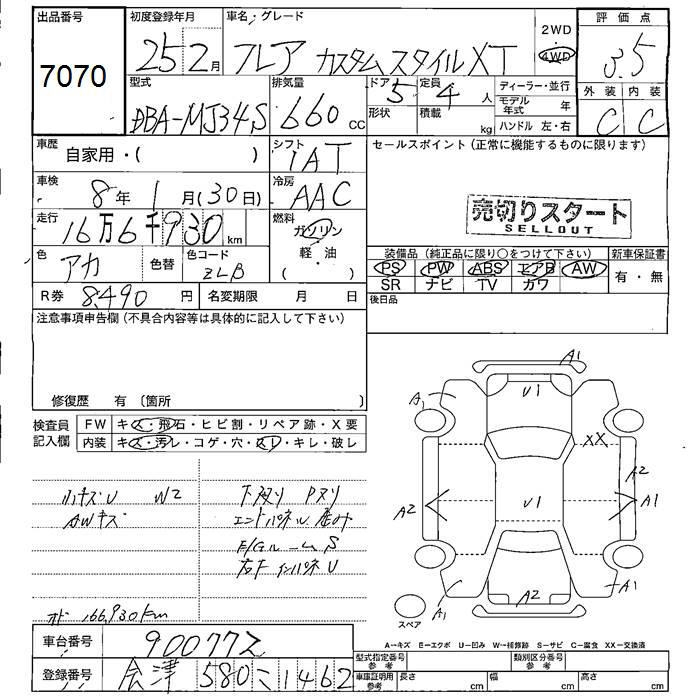 出品番号
7070
初度登録年月
25 2月
車名・グレード
フレア カスタムスタイルXT
2WD
4WD
評価点
3.5
外装 内装
C C
型式
DBA-MJ34S
排気量
660cc
ドア 5
形状
定員 4人
積載 kg
ディーラー・並行
モデル年式 年
ハンドル 左・右
車歴
自家用・( )
シフト
IAT
車検
8年 1月(30日)
冷房
AAC
走行
16万6千930km
燃料
ガソリン
軽・油
( )
色
アカ
色替
色コード
ZLB
R券 8490円
名変期限 月 日
セールスポイント (正常に機能するものに限ります)
売切りスタート
SELLOUT
装備品 (純正品に限り○をつけて下さい)
新車保証書
PS PW ABS エアB AW
有・無
SR ナビ TV カワ
後日品
注意事項申告欄 (不具合内容等は具体的に記入して下さい)
修復歴 有 (箇所 )
検査員記入欄
FW キズ・飛石・ヒビ割・リペア跡・X要
内装 キズ・汚レ・コゲ・穴・スレ・キレ・破レ
小キズU W2
AWキズ
下ヌリ Pヌリ
エンドパネル
E/Gルーム S
右F インパネU
オド 166,930km
A1
A1
A1
U1
XX
A2
A2
U1
A1
A2
A1
A1
スペア
A→キズ E→エクボ U→凹み W→補修跡 S→サビ C→腐食 XX→交換済
車台番号
900772
登録番号
会津 580 こ 1462
型式指定番号
参考
類別区分番号
参考
車庫証明用
参考
長さ cm
幅 cm
高さ cm